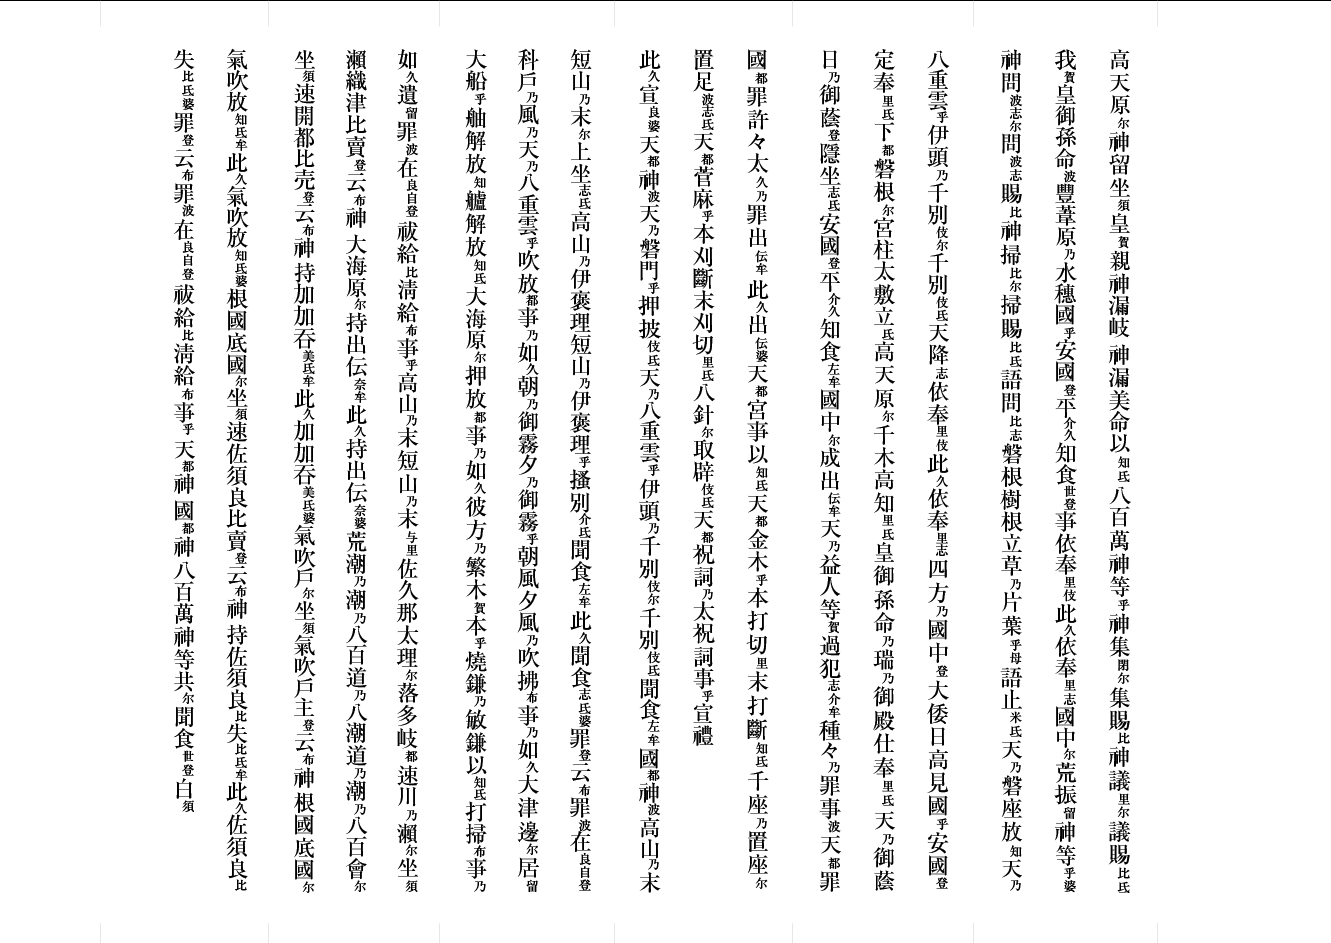 高天原尓神留坐須皇賀親神漏岐神漏美命以知氐八百萬神等乎神集閇尓集賜比神議里尓議賜比氐
我賀皇御孫命波豐葦原乃水穗國乎安國登平介久知食世登事依奉里伎此久依奉里志國中尓荒振留神等乎婆
神問波志尓問波志賜比神掃比尓掃賜比氐語問比志磐根樹根立草乃片葉乎母語止米氐天乃磐座放知天乃
八重雲乎伊頭乃千別伎尓千別伎氐天降志依奉里伎此久依奉里志四方乃國中登大倭日高見國乎安國登
定奉里氐下都磐根尓宮柱太敷立氐高天原尓千木高知里氐皇御孫命乃瑞乃御殿仕奉里氐天乃御蔭
日乃御蔭登隱坐志氐安國登平介久知食左牟國中尓成出伝牟天乃益人等賀過犯志介牟種々乃罪事波天都罪
國都罪許々太久乃罪出伝牟此久出伝婆天都宮事以知氐天都金木乎本打切里末打斷知氐千座乃置座尓
置足波志氐天都菅麻乎本刈斷末刈切里氐八針尓取辟伎氐天都祝詞乃太祝詞事乎宣禮
此久宣良婆天都神波天乃磐門乎押披伎氐天乃八重雲乎伊頭乃千別伎尓千別伎氐聞食左牟國都神波高山乃末
短山乃末尓上坐志氐高山乃伊褒理短山乃伊褒理乎搔別介氐聞食左牟此久聞食志氐婆罪登云布罪波在良自登
科戶乃風乃天乃八重雲乎吹放都事乃如久朝乃御霧夕乃御霧乎朝風夕風乃吹拂布事乃如久大津邊尓居留
大船乎舳解放知艫解放知氐大海原尓押放都事乃如久彼方乃繁木賀本乎燒鎌乃敏鎌以知氐打掃布事乃
如久遺留罪波在良自登祓給比淸給布事乎高山乃末短山乃末与里佐久那太理尓落多岐都速川乃瀨尓坐須
瀨織津比賣登云布神大海原尓持出伝奈牟此久持出伝奈婆荒潮乃潮乃八百道乃八潮道乃潮乃八百會尓
坐須速開都比売登云布神持加加吞美氐牟此久加加吞美氐婆氣吹戶尓坐須氣吹戶主登云布神根國底國尓
氣吹放知氐牟此久氣吹放知氐婆根國底國尓坐須速佐須良比賣登云布神持佐須良比失比氐牟此久佐須良比
失比氐婆罪登云布罪波在良自登祓給比淸給布事乎天都神國都神八百萬神等共尓聞食世登白須